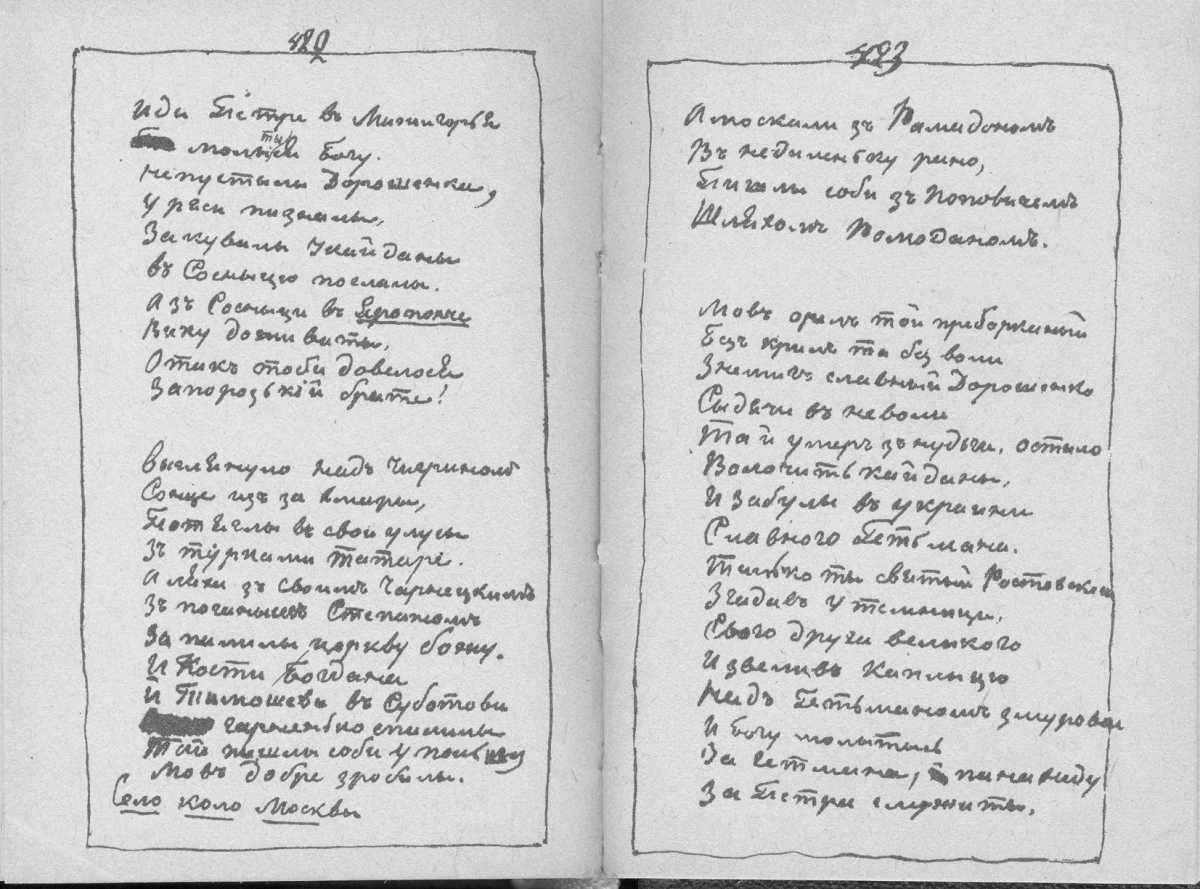 420
Иди Петри въ Межигорья
молытысь Богу.
непустылы Дорошенка,
У рясы пизналы,
Закувалы укайданы
въ Сосныцю послалы.
А зъ Сосныци въ Яропончи
Вику дожывать,
Отакъ тоби довелося
Запорозьскій брате!
Выглянуло надъ Чигриномъ
Сонце изъ за хмары,
Потяглы въ свои улусы
Зъ турками татаре.
А ляхи зъ своимъ Чарнецкимъ
Зъ поганымъ Степаномъ
Запалилы церкву божу.
И кости Богдана
Й Тимошевы въ Суботови
гарненько спалылы
Тай пишлы соби у польшу
Мовъ добре зробылы.
Село коло Москвы
423
А москали зъ Рамоданомъ
Въ недиленьку рано,
Пишлы соби зъ Поповичемъ
Шляхомъ Ромоданомъ.
Мовъ орелъ той приборканый
Безъ крилъ та без воли
Знемигъ славный Дорошенко
Сыдячи въ неволи
Тай умеръ зъ нудьги. остыло
Волочить кайданы,
И забулы въ украини
Славного Гетьмана.
Тилько ты святый Ростовскій
Згадавъ у темныци,
Свого друга великого
И звеливъ каплыцю
Надъ Гетьманомъ змуровать
И Богу молытысь
За Гетмана, панахиду
За Петра служить.